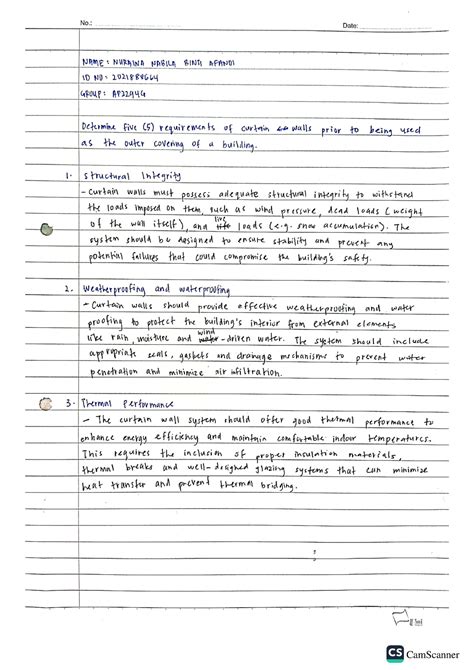 No.: Date:
NAME : NURAINA NABILA BINTI AFANDI
ID NO : 2021888664
GROUP : AP2244G
Determine five (5) requirements of curtain walls prior to being used
as the outer covering of a building.
1. Structural Integrity
- Curtain walls must possess adequate structural integrity to withstand
the loads imposed on them, such as wind pressure, dead loads (weight
of the wall itself), and live loads (e.g. snow accumulation). The
system should be designed to ensure stability and prevent any
potential failures that could compromise the building's safety.
2. Weatherproofing and waterproofing
- Curtain walls should provide effective weatherproofing and water
proofing to protect the building's interior from external elements
like rain, moisture and wind-driven water. The system should include
appropriate seals, gaskets and drainage mechanisms to prevent water
penetration and minimize air infiltration.
3. Thermal Performance
- The curtain wall system should offer good thermal performance to
enhance energy efficiency and maintain comfortable indoor temperatures.
This requires the inclusion of proper insulation materials,
thermal breaks and well-designed glazing systems that can minimize
heat transfer and prevent thermal bridging.
CS CamScanner